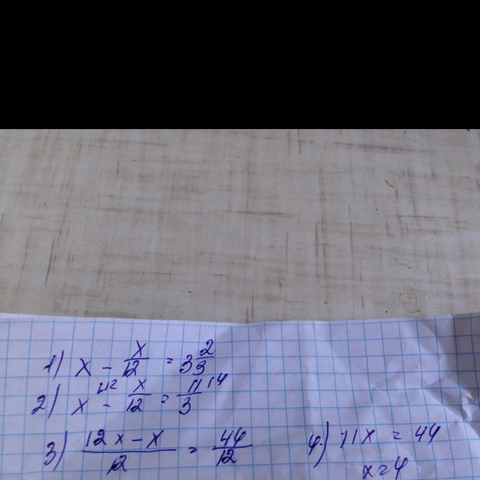 1) x - x/12 = 3 2/3
2) x^(12 - x/12 = 11/3^(4
3) (12x - x)/12 = 44/12
4) 11x = 44
x = 4